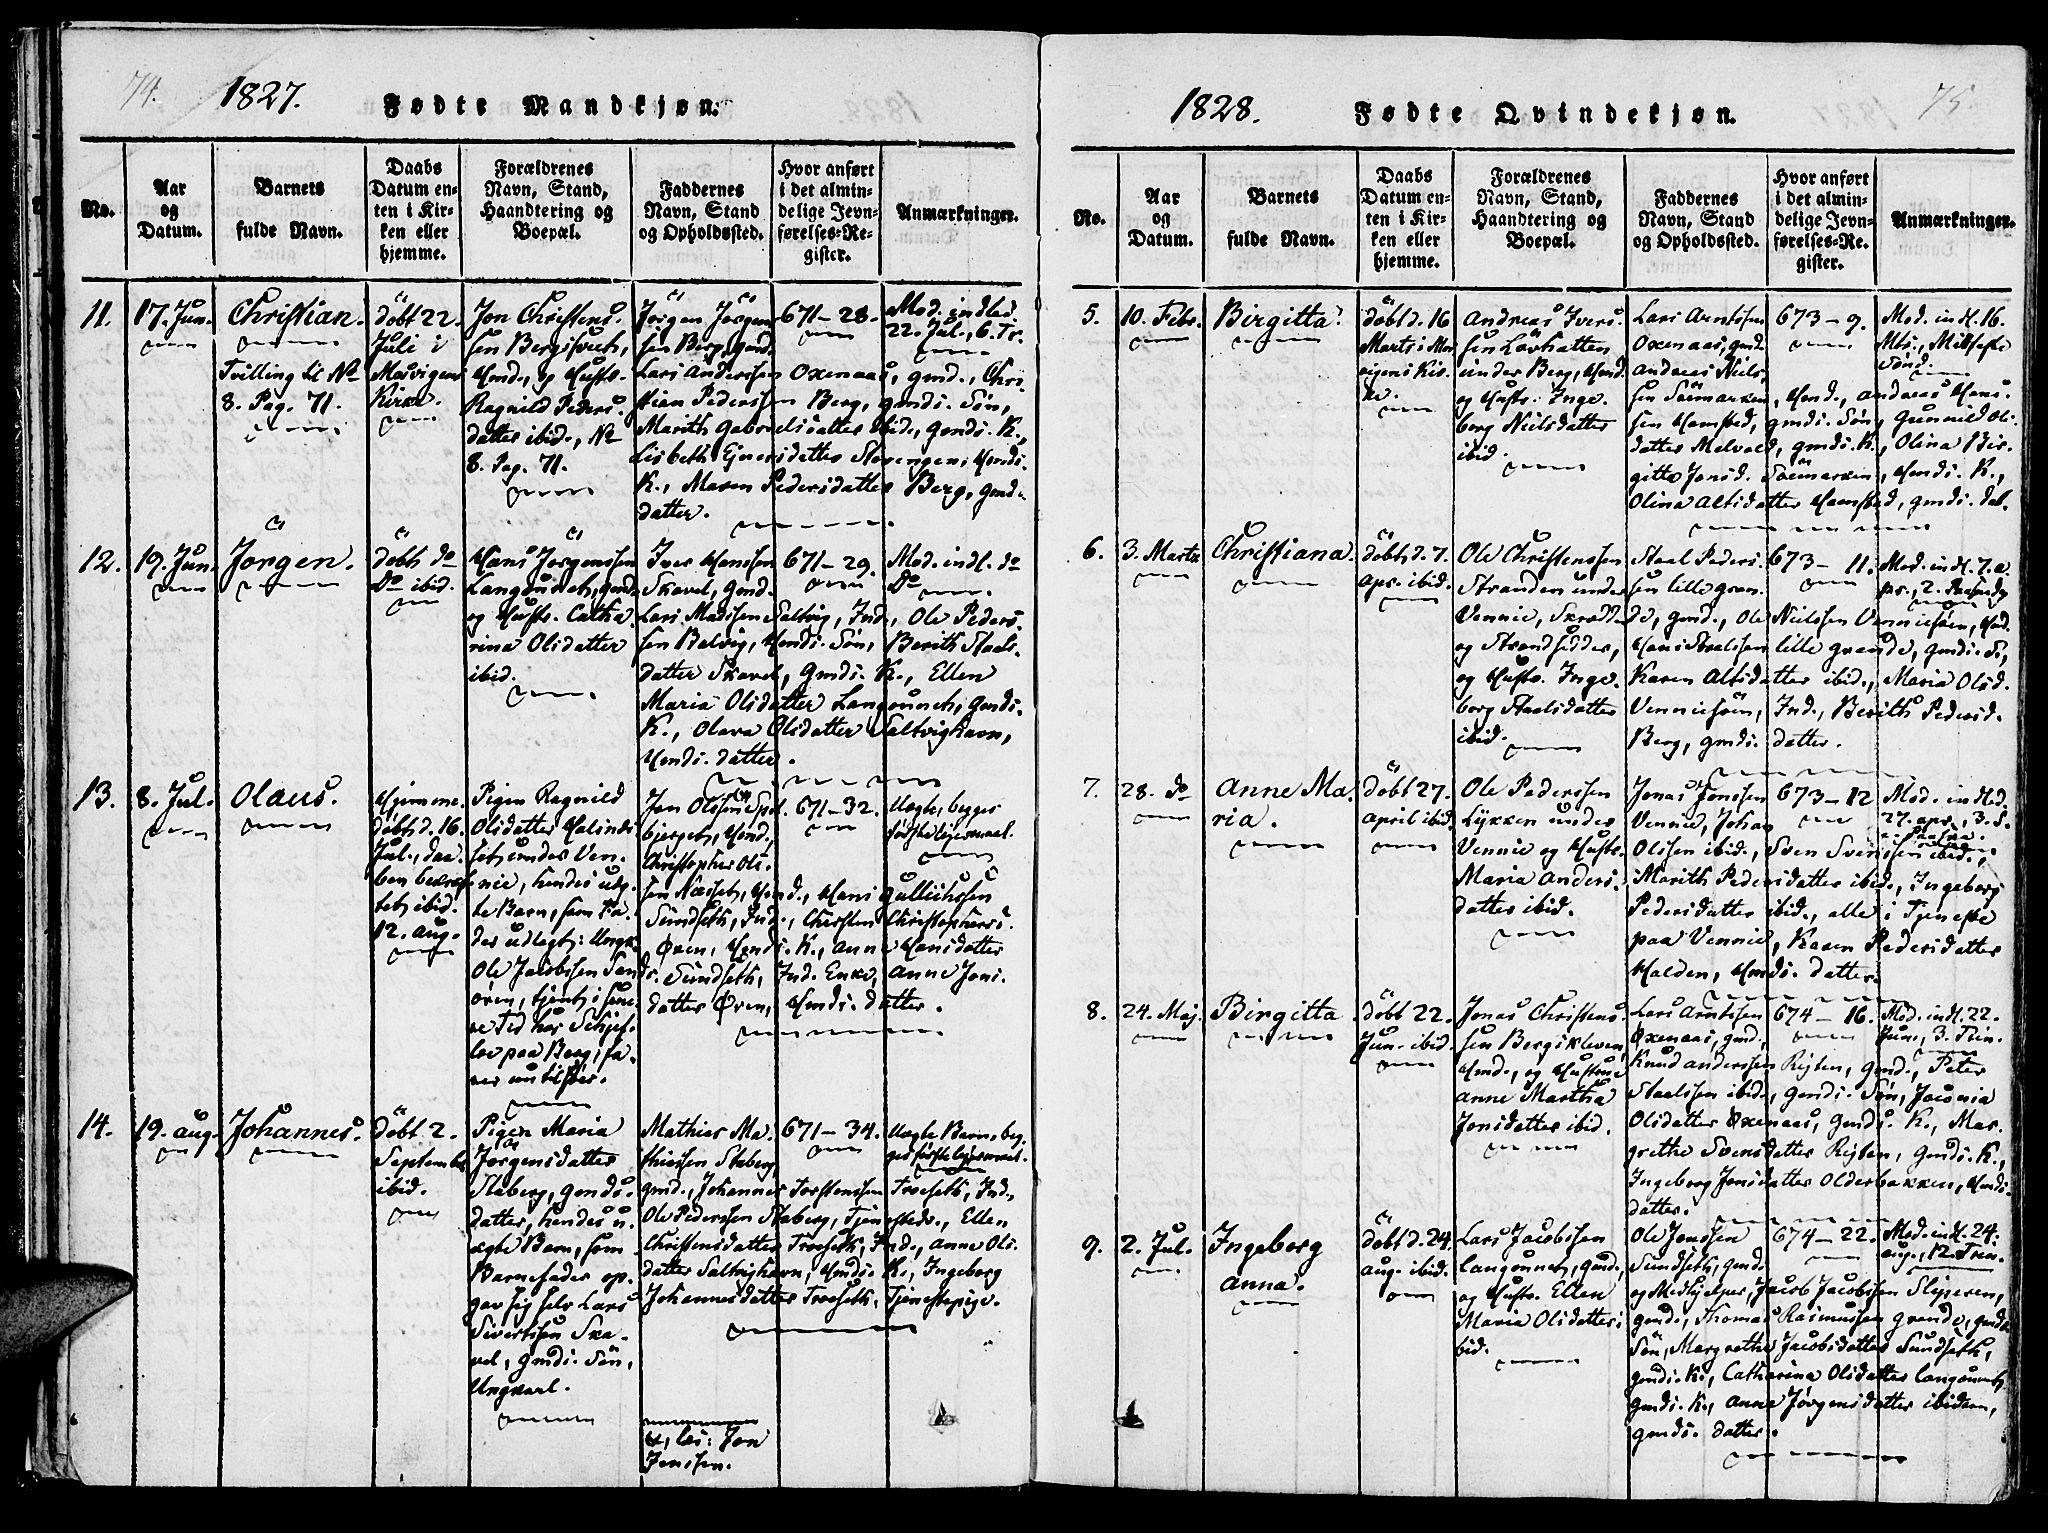 74.
1827.
Fødte Mandkjøn.
No.
Aar
og
Datum.
Barnets
fulde Navn.
Daabs
Datum en-
ten i Kir-
ken eller
hjemme.
Forældrenes
Navn, Stand,
Haandtering og
Boepæl.
Faddernes
Navn, Stand
og Opholdssted.
Hvor anført
i det almin-
delige Jevn-
førelses-Re-
gister.
Anmærkninger.
11.
17. Jun.
Christian.
Tvilling til No
8. Pag. 71.
döbt 22.
Juli i
Mosvigens
Kirke.
Jon Christens.
sen
Hmd., og Hust.
Ragnild Peders.
datter ibid., No
8. Pag. 71.
Jörgen Jörgen
sen Berg, Gmd.
Lars Anderssen Oxenaas, Gmd., Chri-
stian Pederssen Berg, Gmds. Søn,
Marith Gabrielsdatter ibid., Gmds. K.,
Lisbeth Ejnersdatter Stavengen, Hmds.
K., Maren Pedersdatter Berg, Gmds
datter.
671-28.
Mod. indled.
22. Jul., 6. Tr.
12.
19. Jun.
Jörgen.
döbt do
Do ibid.
Hans Jörgenssen
Langönneth, Gmd.
og Hust. Catha-
rina Olsdatter
ibid.
Iver Hanssen
Skavel, Gmd.
Lars Madssen Saltvig, Ind., Ole Peders.
sen Belvig, Hmds. Søn, Berith Staals-
datter Skavel, Gmds. K., Ellen
Maria Olsdatter Langönneth, Gmds.
K., Olava Olsdatter Saltvighavn,
Hmds. datter.
671-29.
Mod. indl. do
Do.
13.
8. Jul.
Olaus.
Hjemme-
döbt d. 16.
Jul., daa-
ben bekræf-
tet ibid.
12. Aug.
Pigen Ragnild
Olsdatter
under Ven-
nie, hendes uæg-
te Barn, som Fa-
der udlagt: Ungk.
Ole Jacobssen Sand-
ören, tjent i sene-
re Tid hos
paa Berg,
Jon Olssen
bjerget, Hmd.,
Christopher Ols-
sen Næsset, Hmd., Hans Gullichssen
Sundseth, Ind., Chersten Christophersd.
Ören, Hmds. K., Anne Hansdatter
Sundseth, Ind. Enke, Anne Jons.
datter Ören, Hmds. datter.
671-32.
Uægte, begges
første lejermaal.
14.
19. Aug.
Johannes.
döbt 2.
Septembr.
ibid.
Pigen Maria
Jörgensdatter
Staberg, Gmds.
datter, hendes u-
ægte Barn, som
Barnefader op-
gav sig selv Lars
Sivertssen Ska-
vel, Gmds. Søn,
Ungkarl.
Mathias Ma-
thiessen Staberg
Gmd., Johannes Torstenssen Troeseth, Ind.,
Ole Pederssen Staberg, Tjenstedr., Ellen
Christensdatter Troeseth, Ind., Anne Ols.
datter Saltvighavn, Hmds. K., Ingeborg
Johannesdatter Troeseth, Tjenestepige.
læs: Jon
Jonssen.
671-34.
Uægte Barn, beg-
ges første lejermaal.
75.
1828.
Fødte Qvindekjøn.
No.
Aar
og
Datum.
Barnets
fulde Navn.
Daabs
Datum en-
ten i Kir-
ken eller
hjemme.
Forældrenes
Navn, Stand,
Haandtering og
Boepæl.
Faddernes
Navn, Stand
og Opholdssted.
Hvor anført
i det almin-
delige Jevn-
førelses-Re-
gister.
Anmærkninger.
5.
10. Febr.
Birgitta.
döbt d. 16
Marts i Mos-
vigens Kir-
ke.
Andreas Ivers.
sen Lövhatten
under Berg, Hmd.
og Hust. Inge-
borg Nielsdatter
ibid.
Lars Arntssen
Oxenaas, Gmd.
Andreas Niels.
sen Söemarken, Hmd., Andreas Hans.
sen Hamsted, Gmds. Søn, Gunnild Ols-
datter Melvald, Gmds. K., Olina Bir-
gitte Jonsd. Söemarken, Hmds. K.,
Olina Altsdatter Hamsted, Gmds. dat.
673-9.
Mod. indl. 16.
Mts., Midfaste
Sönd.
6.
3. Marts
Christiana.
döbt d. 7.
Apr. ibid.
Ole Christenssen
Stranden under
Vennie, Skræd-
og Strandsidder,
og Hust. Inge-
borg Staalsdatter
ibid.
Staal Peders-
sen lille gran-
de, Gmd., Ole Nielssen Venniesöen, Hmd.
Hans Staalssen lille grande, Gmds. S.,
Karen Altsdatter ibid., Maria Olsd.
Venniesöen, Ind., Berith Pedersd.
Berg, Gmds. datter.
673-11.
Mod. indl. 7. A-
pr., 2. Paaskedg
7.
28. do
Anne Ma-
ria.
döbt 27.
April ibid.
Ole Pederssen
Lykken under
Vennie og Hust.
Maria Anders.
datter ibid.
Jonas Jonssen
Vennie, Johan
Olssen ibid., Sven Svenssen ibid.,
Marith Pedersdatter ibid., Ingeborg
Pedersdatter ibid., alle i Tjeneste
paa Vennie, Karen Pedersdatter
Halden, Hmds. datter.
673-12
Mod. indled.
27. Apr., 3. S.
e. Paaske.
8.
24. Maj.
Birgitta
döbt 22.
Jun. ibid.
Jonas Christens.
sen Bergskleven,
Hmd., og Hustrue
Anne Martha
Jonsdatter ibid.
Lars Arntssen
Oxenaas, Gmd.,
Knud Anderssen Rejten, Gmd., Peter
Staalssen ibid., Gmds. Søn, Jaconia
Olsdatter Oxenaas, Gmds. K., Mar-
grethe Svensdatter Rejten, Gmds. K.,
Ingeborg Jonsdatter Olderbakken, Hmds.
datter.
674-16.
Mod. indl. 22.
Jun., 3. Trin.
9.
2. Jul.
Ingeborg
Anna.
döbt d. 24.
Aug. ibid.
Lars Jacobssen
Langönnet, Gmd.,
og Hust. Ellen
Maria Olsdatter i-
bid.
Ole Jonssen
Sundseth, Gmd.
og Medhjelper, Jacob Jacobssen Slipersen,
Gmd., Thomas Rasmussen Grande, Gmds
Søn, Margrethe Jacobsdatter Sundseth,
Gmds. K., Catharina Olsdatter Langönnet,
Gmds. K., Anne Jørgensdatter ibidem,
Gmds. datter.
674-22.
Mod. indl. 24.
Aug., 12. Trin.